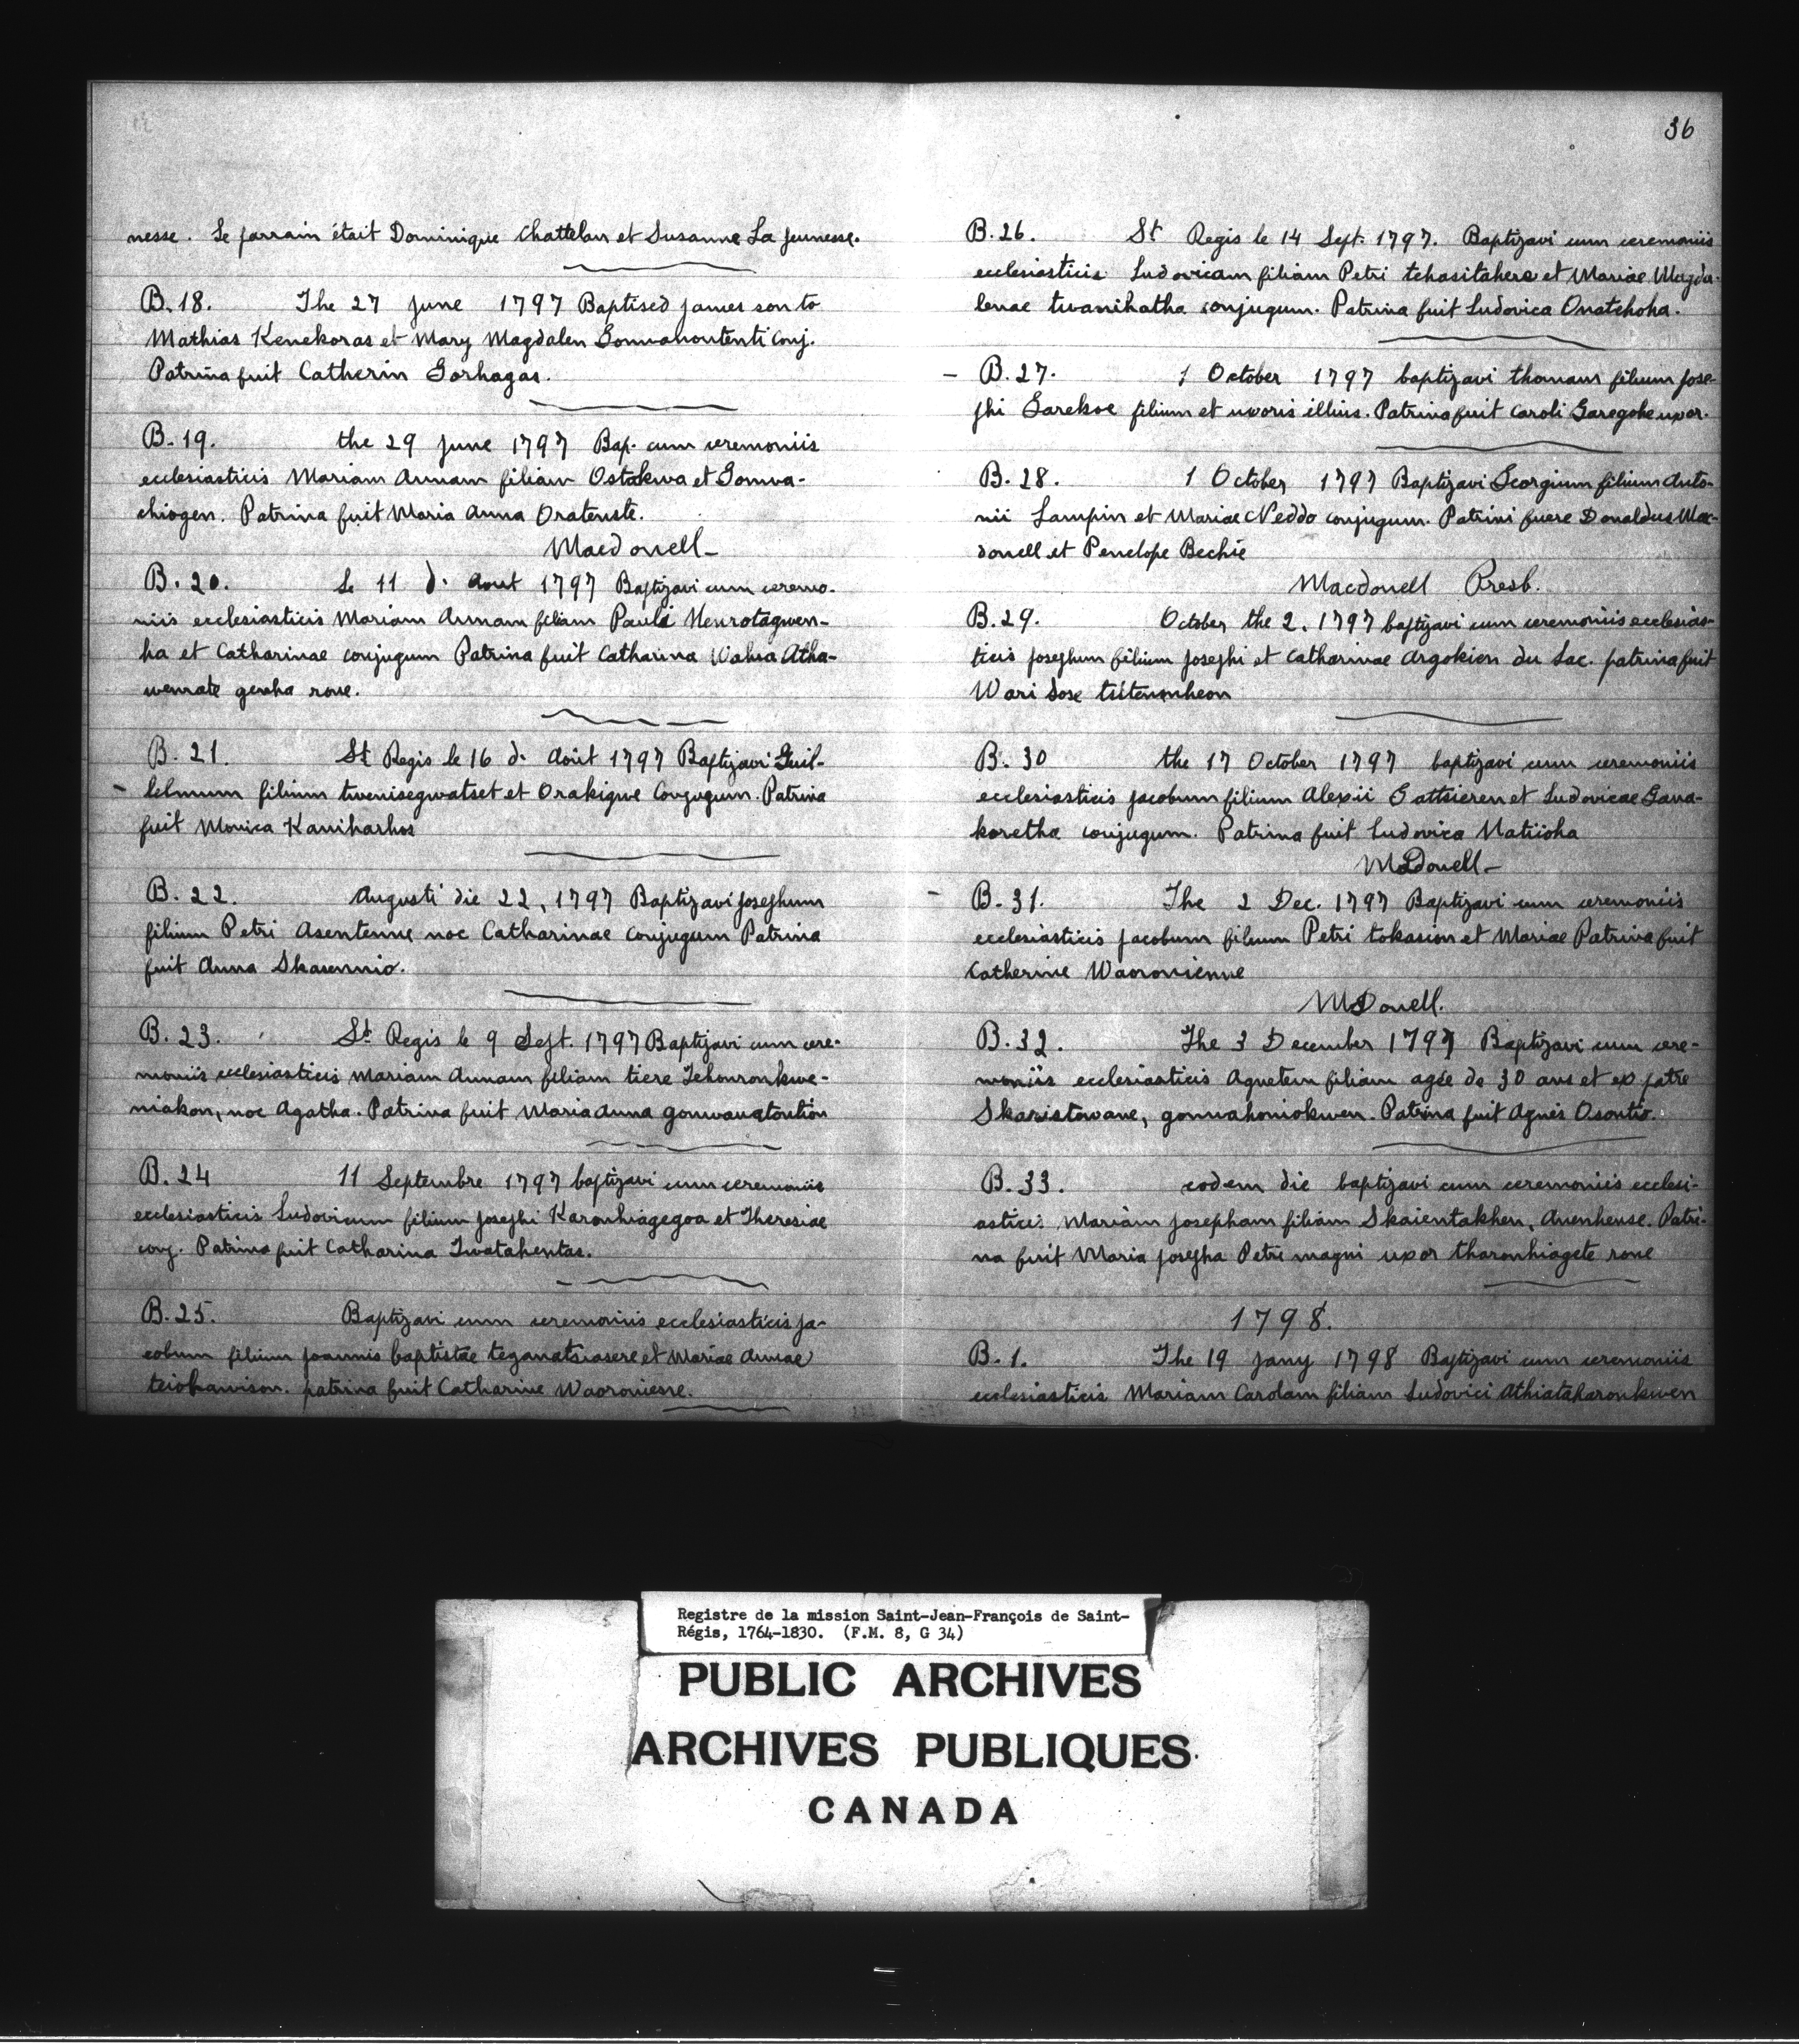 nesse. Le parrain était Dominique Chattelan et Susanne La Jeunesse.
B. 18. The 27 June 1797 Baptised James son to
Mathias Kenekoras et Mary Magdalen Gonwahoutenti Conj.
Patrina fuit Catherin Gorhagas.
B. 19. the 29 June 1797 Bap. cum ceremoniis
ecclesiasticis Mariam Annam filiam Ostakwa et Gonwa-
chiogen. Patrina fuit Maria Anna Oratenste.
Macdonell
B. 20. Le 11 d. Aout 1797 Baptizavi cum ceremo-
niis ecclesiasticis Mariam Annam filiam Pauli Newrotagwen-
ha et Catharinae conjugum Patrina fuit Catharina Wahia Atha-
wenrate geraha rone.
B. 21. St Regis le 16 d. Août 1797 Baptizavi Guil-
lelmum filium twenisegwatset et Orakigwe Conjugum. Patrina
fuit Monica Kaniharhos
B. 22. Augusti die 22, 1797 Baptizavi Josephum
filium Petri Asentenne noc Catharinae Conjugum Patrina
fuit Anna Skasennio.
B. 23. St. Regis le 9 Sept. 1797 Baptizavi cum cere-
moniis ecclesiasticis Mariam Annam filiam tiere Tehouronkwe-
niakon, noc Agatha. Patrina fuit Maria Anna gonwanatontion
B. 24 11 Septembre 1797 baptizavi cum ceremoniis
ecclesiasticis Ludovicum filium Josephi Karonhiagegoa et Theresiae
conj. Patrina fuit Catharina Twatahentas.
B. 25. Baptizavi cum ceremoniis ecclesiasticis Ja-
cobum filium Joannis baptistae teganatsiasere et Mariae Annae
teiohawison. patrina fuit Catharine Waoroniesne.
36
B. 26. St Regis le 14 Sept. 1797. Baptizavi cum ceremoniis
ecclesiasticis Ludovicam filiam Petri tehasitahere et Mariae Magda-
lenae twanihatha conjugum. Patrina fuit Ludovica Onatehoha.
B. 27. 1 October 1797 baptizavi thomam filium Jose-
phi Garekoe filium et uxoris illius. Patrina fuit Caroli Garegohe uxor.
B. 28. 1 October 1797 Baptizavi Georgium filium Anto-
nii Lampin et Mariae Neddo conjugum. Patrini fuere Donaldus Mac-
donell et Penelope Bechie
Macdonell Presb.
B. 29. October the 2. 1797 baptizavi cum ceremoniis ecclesias-
ticis Josephum filium Josephi et Catharinae Argokion du Lac. patrina fuit
Wari Sose tsitenonheon
B. 30 the 17 October 1797 baptizavi cum ceremoniis
ecclesiasticis Jacobum filium Alexii Gattsieren et Ludovicae Gana-
koretha conjugum. Patrina fuit Ludovica Natiioha
McDonell
B. 31. The 2 Dec. 1797 Baptizavi cum ceremoniis
ecclesiasticis Jacobum filium Petri tokasion et Mariae Patrina fuit
Catherine Waoronienne
McDonell.
B. 32. The 3 December 1797 Baptizavi cum cere-
moniis ecclesiasticis Agnetem filiam agée de 30 ans et ex patre
Skaristowane, gonwahoniokwen. Patrina fuit Agnes Osontio.
B. 33. eodem die baptizavi cum ceremoniis ecclesi-
asticis Mariam Josepham filiam Skaientakhen, Anenhense. Patri-
na fuit Maria Josepha Petri magni uxor tharonhiagete rone
1798.
B. 1. The 19 Jany 1798 Baptizavi cum ceremoniis
ecclesiasticis Mariam Carolam filiam Ludovici Athiataharonkwen
Registre de la mission Saint-Jean-François de Saint-
Régis, 1764-1830. (F.M. 8, G 34)
PUBLIC ARCHIVES
ARCHIVES PUBLIQUES
CANADA